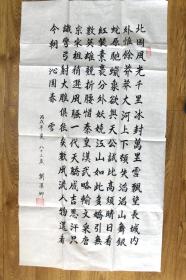 北國風光千里冰封萬里雪飄望長城內
外惟餘莽莽大河上下頓失滔滔山舞銀
蛇原馳蠟象欲與天公試比高須晴日看
紅裝素裹分外妖嬈江山如此多嬌引無
數英雄競折腰惜秦皇漢武略輸文采唐
宗宋祖稍遜風騷一代天驕成吉思汗只
識彎弓射大雕俱往矣數風流人物還看
今朝 沁園春 雪
八十三 劉漢